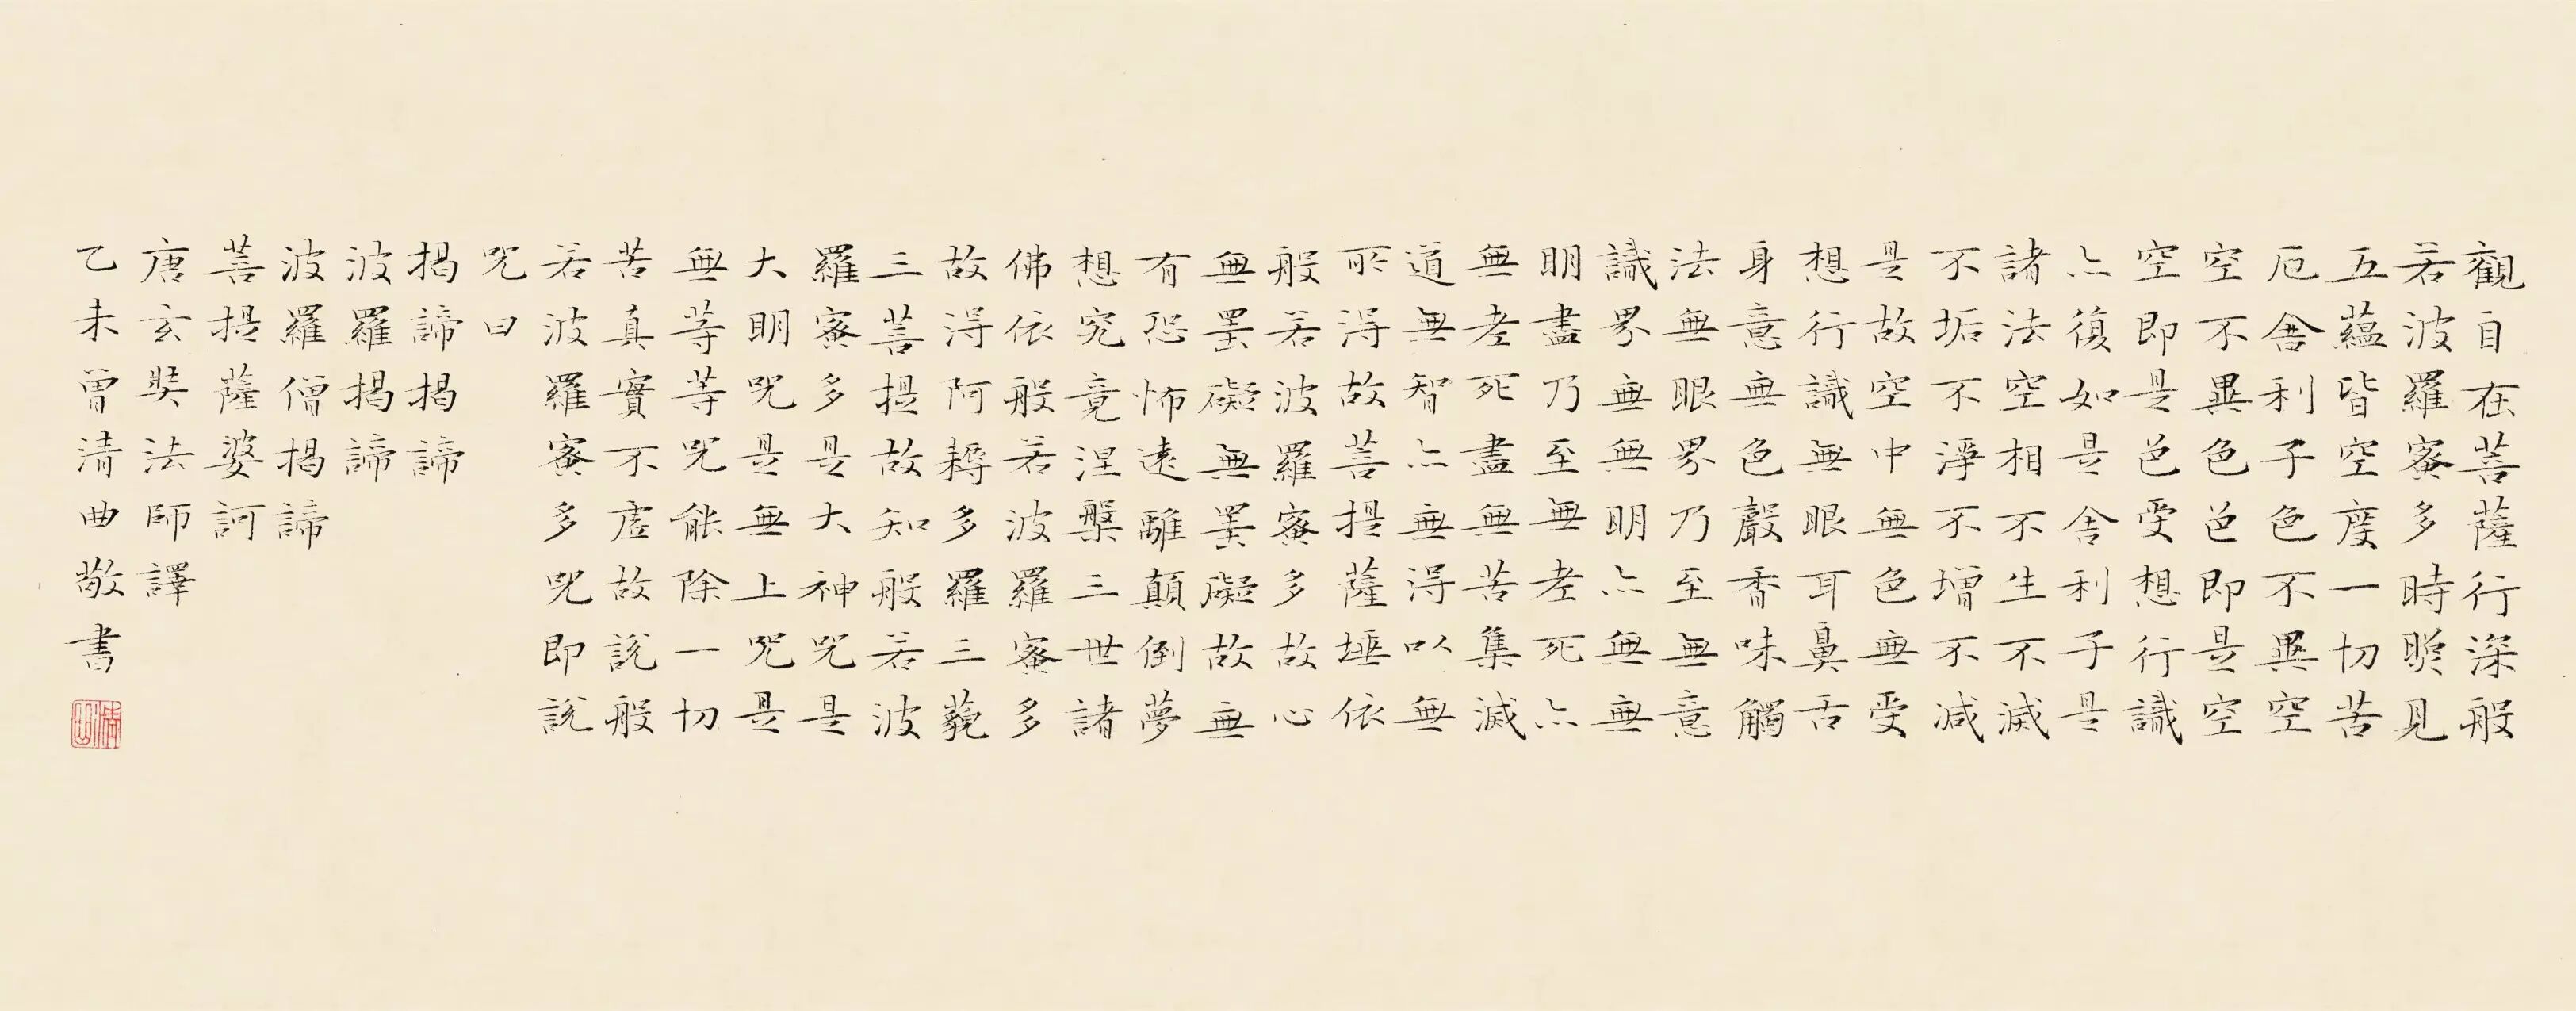 觀自在菩薩行深般
若波羅蜜多時照見
五蘊皆空度一切苦
厄舍利子色不異空
空不異色色即是空
空即是色受想行識
亦復如是舍利子是
諸法空相不生不滅
不垢不淨不增不減
是故空中無色無受
想行識無眼耳鼻舌
身意無色聲香味觸
法無眼界乃至無意
識界無無明亦無無
明盡乃至無老死亦
無老死盡無苦集滅
道無智亦無得以無
所得故菩提薩埵依
般若波羅蜜多故心
無罣礙無罣礙故無
有恐怖遠離顛倒夢
想究竟涅槃三世諸
佛依般若波羅蜜多
故得阿耨多羅三藐
三菩提故知般若波
羅蜜多是大神咒是
大明咒是無上咒是
無等等咒能除一切
苦真實不虛故說般
若波羅蜜多咒即說
咒曰
揭諦揭諦
波羅揭諦
波羅僧揭諦
菩提薩婆訶
唐玄奘法師譯
乙未曾清曲敬書
清曲